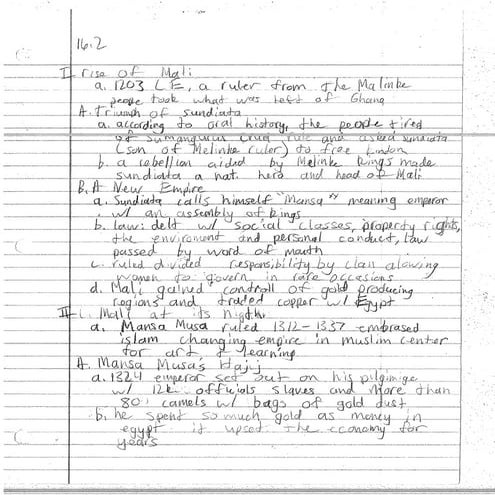 16.2
I rise of Mali
a. 1203 CE, a ruler from the Malinke
people took what was left of Ghana
A. Triumph of sundiata
a. according to oral history, the people tired
of sumanguru cruel rule and asked sundiata
(son of Melinke ruler) to free
b. a rebellion aided by Melinke kings made
sundiata a nat. hero and head of Mali
B. A New Empire
a. Sundiata calls himself "Mansa" meaning emperor
w/ an assembly of kings
b. law: delt w/ social classes, property rights,
the enviroment and personal conduct, law
passed by word of mouth
c. ruled divided responsibility by clan alowing
women to govern in rare occasions
d. Mali gained controll of gold producing
regions and traded copper w/ Egypt
II Mali at its
a. Mansa Musa ruled 1312-1337 embrased
islam changing empire in muslim center
for art & learning
A. Mansa Musa's Hajj
a. 1324 emperor set out on his
w/ 12k officials slaves and more than
80 camels w/ bags of gold dust
b. he spent so much gold as money in
egypt it upset the economy for
years